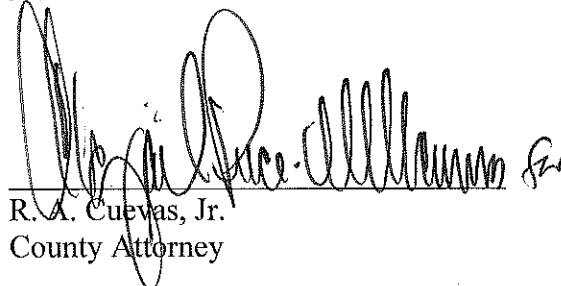 for
R. A. Cuevas, Jr.
County Attorney